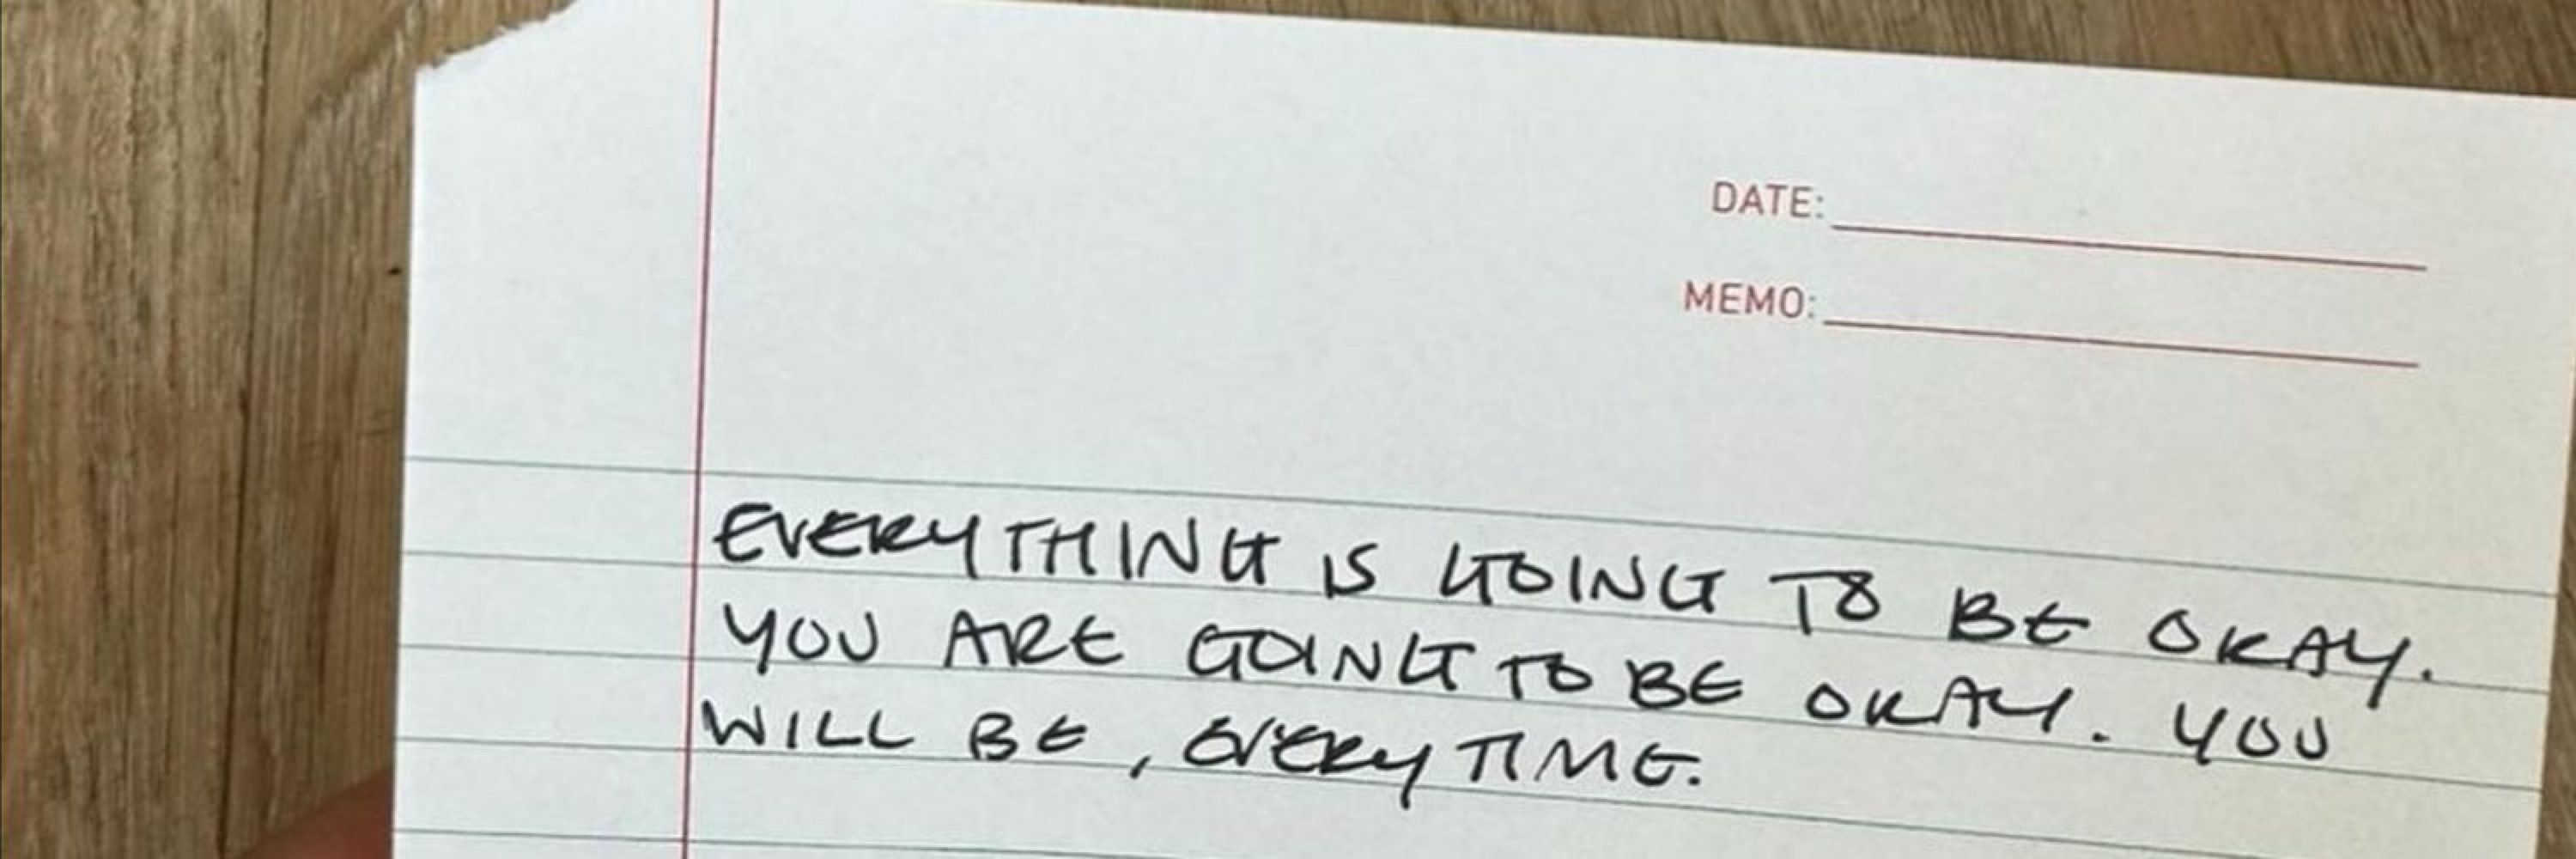 DATE:
MEMO:
EVERYTHING IS GOING TO BE OKAY.
YOU ARE GOING TO BE OKAY. YOU
WILL BE, EVERYTIME.